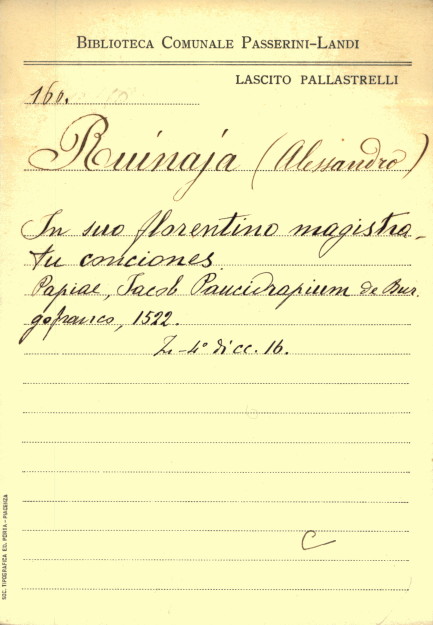 BIBLIOTECA COMUNALE PASSERINI-LANDI
LASCITO PALLASTRELLI
160.
Ruinaja (Alessandro)
In suo florentino magistra-
tu conciones
Papiae, Jacob Paucidrapium de Bur-
gofranco, 1522.
4° di cc. 16.
C
SOC. TIPOGRAFICA ED. PORTA - PIACENZA